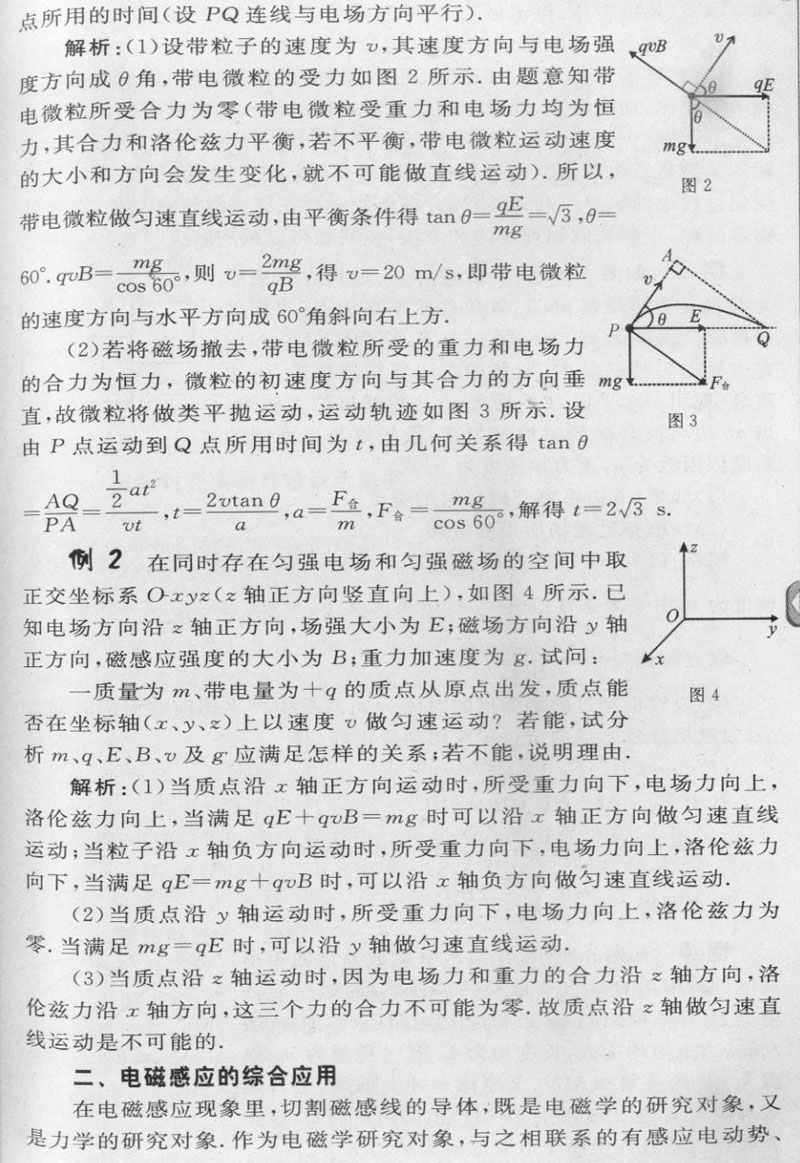 点所用的时间(设 PQ 连线与电场方向平行).
解析:(1)设带粒子的速度为 v,其速度方向与电场强
度方向成 θ 角,带电微粒的受力如图 2 所示. 由题意知带
电微粒所受合力为零(带电微粒受重力和电场力均为恒
力,其合力和洛伦兹力平衡,若不平衡,带电微粒运动速度
的大小和方向会发生变化,就不可能做直线运动). 所以,
带电微粒做匀速直线运动,由平衡条件得 tan θ=qE/mg=√3,θ=
60°. qvB=mg/cos 60°,则 v=2mg/qB,得 v=20 m/s,即带电微粒
的速度方向与水平方向成 60°角斜向右上方.
qvB
v
θ
qE
θ
mg
图 2
(2)若将磁场撤去,带电微粒所受的重力和电场力
的合力为恒力, 微粒的初速度方向与其合力的方向垂
直,故微粒将做类平抛运动,运动轨迹如图 3 所示. 设
由 P 点运动到 Q 点所用时间为 t,由几何关系得 tan θ
=AQ/PA=½at²/vt,t=2vtan θ/a,a=F合/m,F合=mg/cos 60°,解得 t=2√3 s.
A
v
P
θ
E
Q
mg
F合
图 3
例 2 在同时存在匀强电场和匀强磁场的空间中取
正交坐标系 O-xyz(z 轴正方向竖直向上),如图 4 所示. 已
知电场方向沿 z 轴正方向,场强大小为 E;磁场方向沿 y 轴
正方向,磁感应强度的大小为 B;重力加速度为 g. 试问:
一质量为 m、带电量为+q 的质点从原点出发,质点能
否在坐标轴(x、y、z)上以速度 v 做匀速运动? 若能,试分
析 m、q、E、B、v 及 g 应满足怎样的关系;若不能,说明理由.
z
O
y
x
图 4
解析:(1)当质点沿 x 轴正方向运动时,所受重力向下,电场力向上,
洛伦兹力向上,当满足 qE+qvB=mg 时可以沿 x 轴正方向做匀速直线
运动;当粒子沿 x 轴负方向运动时,所受重力向下,电场力向上,洛伦兹力
向下,当满足 qE=mg+qvB 时,可以沿 x 轴负方向做匀速直线运动.
(2)当质点沿 y 轴运动时,所受重力向下,电场力向上,洛伦兹力为
零. 当满足 mg=qE 时,可以沿 y 轴做匀速直线运动.
(3)当质点沿 z 轴运动时,因为电场力和重力的合力沿 z 轴方向,洛
伦兹力沿 x 轴方向,这三个力的合力不可能为零. 故质点沿 z 轴做匀速直
线运动是不可能的.
二、电磁感应的综合应用
在电磁感应现象里,切割磁感线的导体,既是电磁学的研究对象,又
是力学的研究对象. 作为电磁学研究对象,与之相联系的有感应电动势、